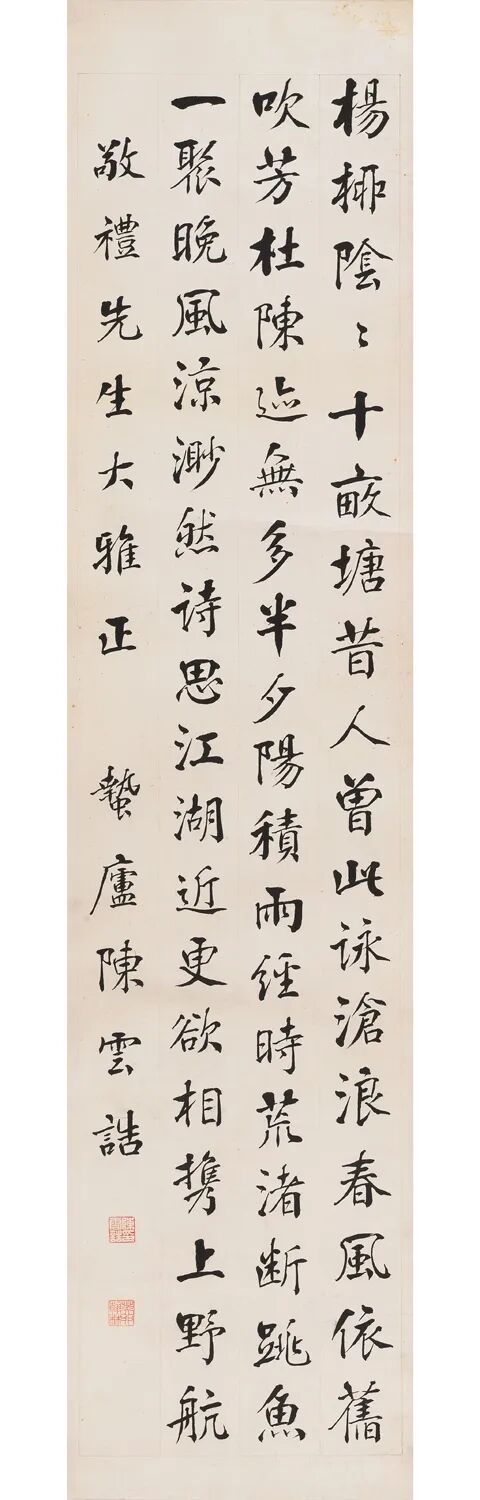 楊桺陰〻十畝塘昔人曾此詠滄浪春風依舊
吹芳杜陳迹無多半夕陽積雨經時荒渚斷跳魚
一聚晚風涼渺然詩思江湖近更欲相攜上野航
敬禮先生大雅正 蟄廬陳雲誥